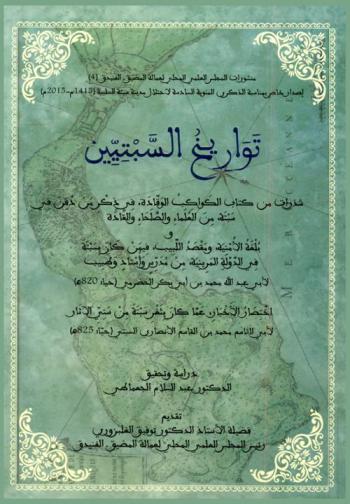 منشورات المجلس العلمي المحلي لعمالة المضيق ـ الفنيدق (4)
إصدار خاص بمناسبة الذكرى المئوية السادسة لاحتلال مدينة سبتة السليبة (1415م-2015م)
تَوَارِيخُ السَّبْتِيِّين
شذرات من كتاب الكواكب الوقادة، في ذكر من دفن في
سبتة من العلماء والصلحاء والقادة
و
بُلغة الأمنية، ومقصد اللبيب، فيمن كان بسبتة
في الدولة المرينية، من مدرس وأستاذ وطبيب
لأبي عبد الله محمد بن أبي بكر الحضرمي (حيا: 820هـ)
اختصار الأخبار، عما كان بثغر سبتة من سني الآثار
لأبي القاسم محمد بن القاسم الأنصاري السبتي (حيا: 825هـ)
دراسة وتحقيق
الدكتور عبد السلام الجعماطي
تقديم
فضيلة الأستاذ الدكتور توفيق الغلبزوري
رئيس المجلس العلمي المحلي لعمالة المضيق ـ الفنيدق